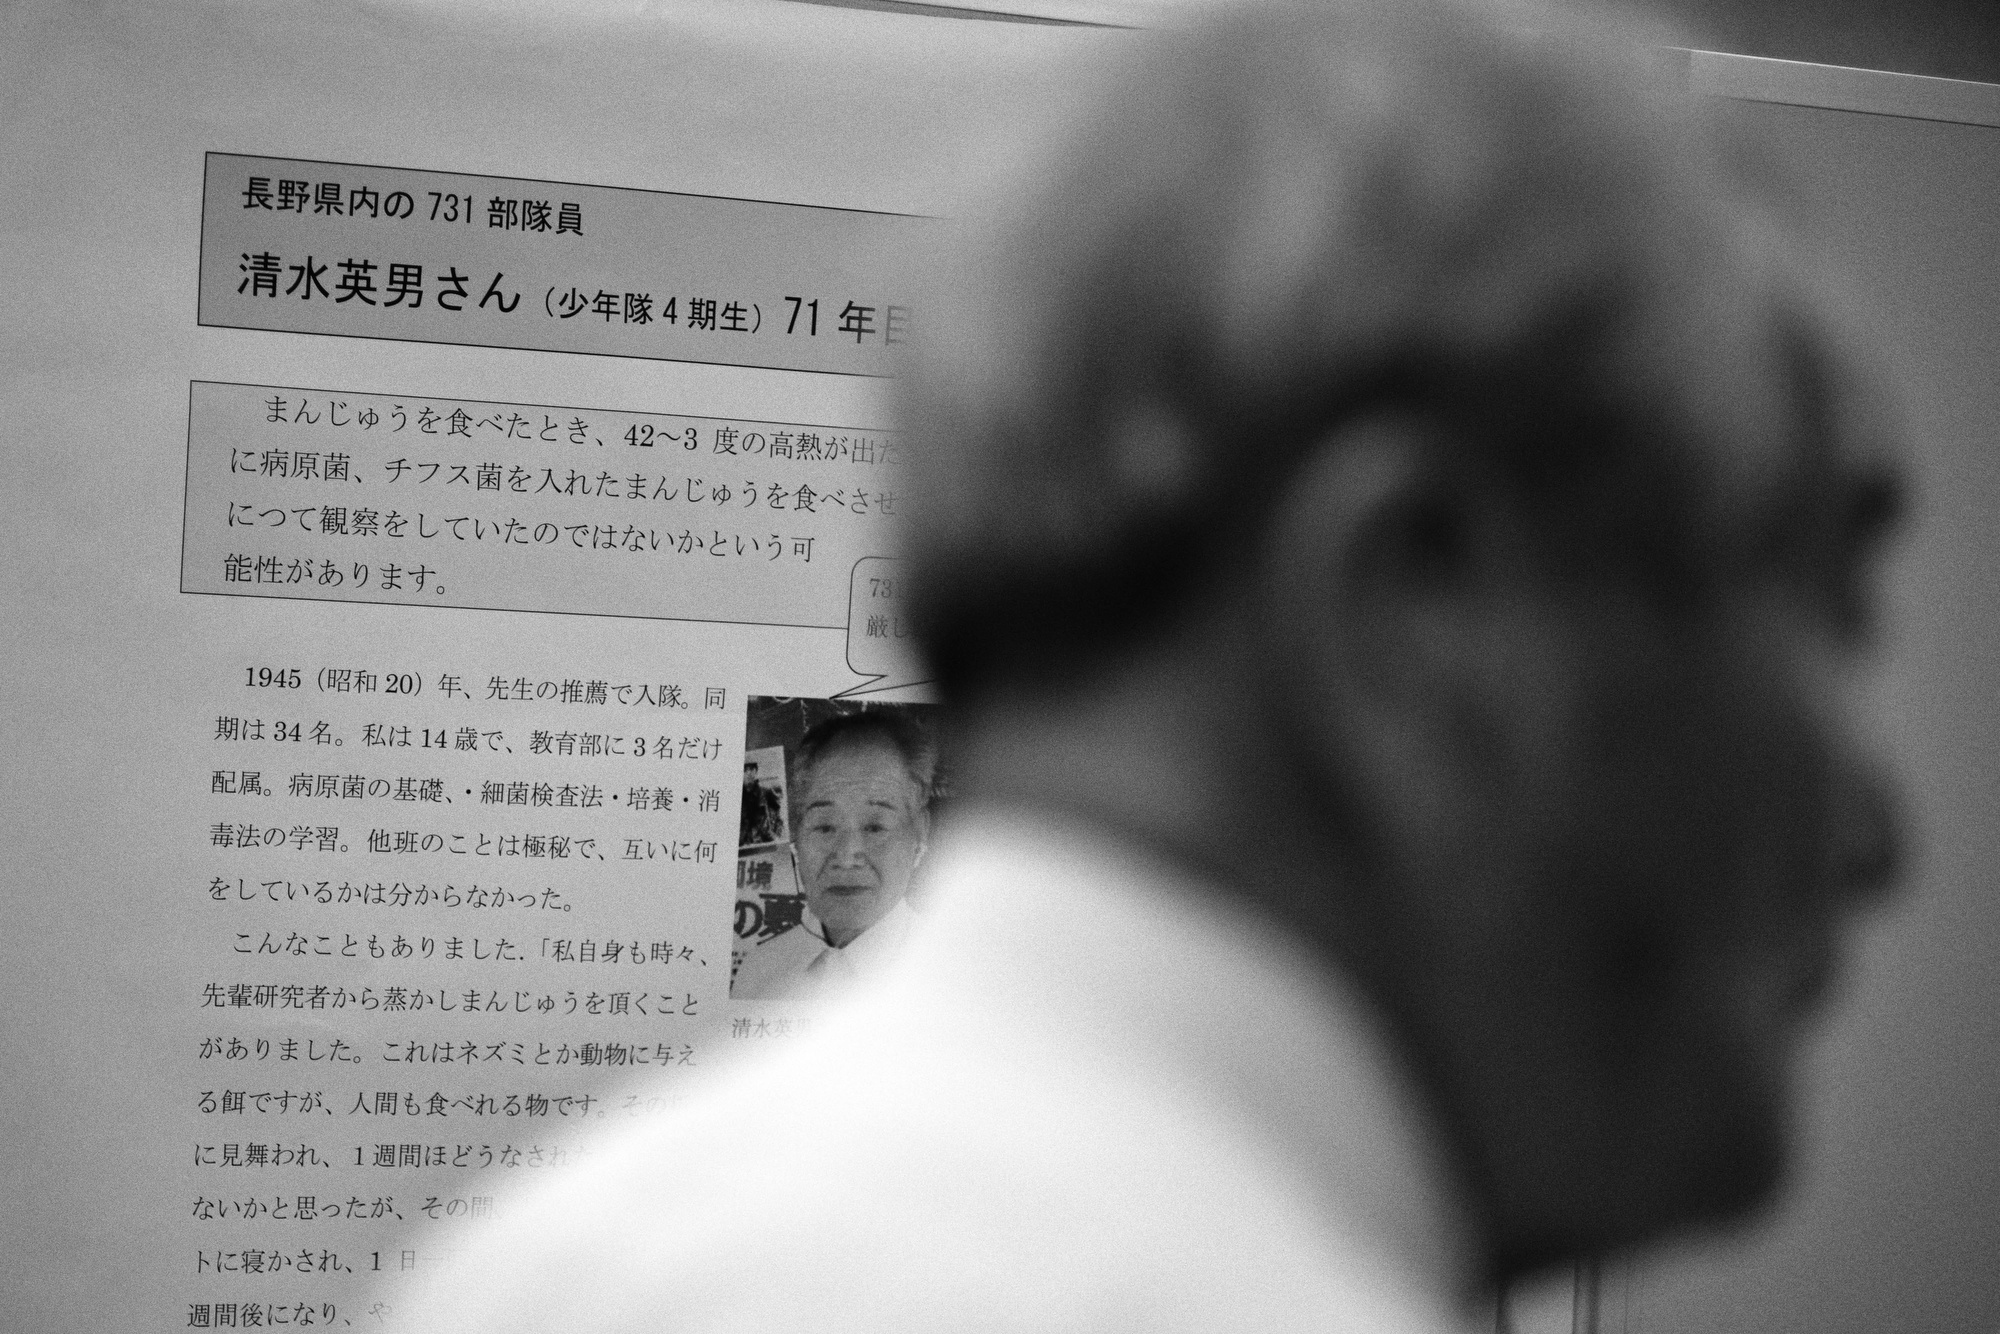 長野県内の 731 部隊員
清水英男さん（少年隊 4 期生）71 年目
まんじゅうを食べたとき、42〜3 度の高熱が出た
に病原菌、チフス菌を入れたまんじゅうを食べさせ
につて観察をしていたのではないかという可
能性があります。
73
厳し
1945（昭和 20）年、先生の推薦で入隊。同
期は 34 名。私は 14 歳で、教育部に 3 名だけ
配属。病原菌の基礎、・細菌検査法・培養・消
毒法の学習。他班のことは極秘で、互いに何
をしているかは分からなかった。
こんなこともありました.「私自身も時々、
先輩研究者から蒸かしまんじゅうを頂くこと
がありました。これはネズミとか動物に与え
る餌ですが、人間も食べれる物です。その
に見舞われ、1 週間ほどうなされた
ないかと思ったが、その間、
トに寝かされ、1 日一
週間後になり、や
境
の夏
清水英男